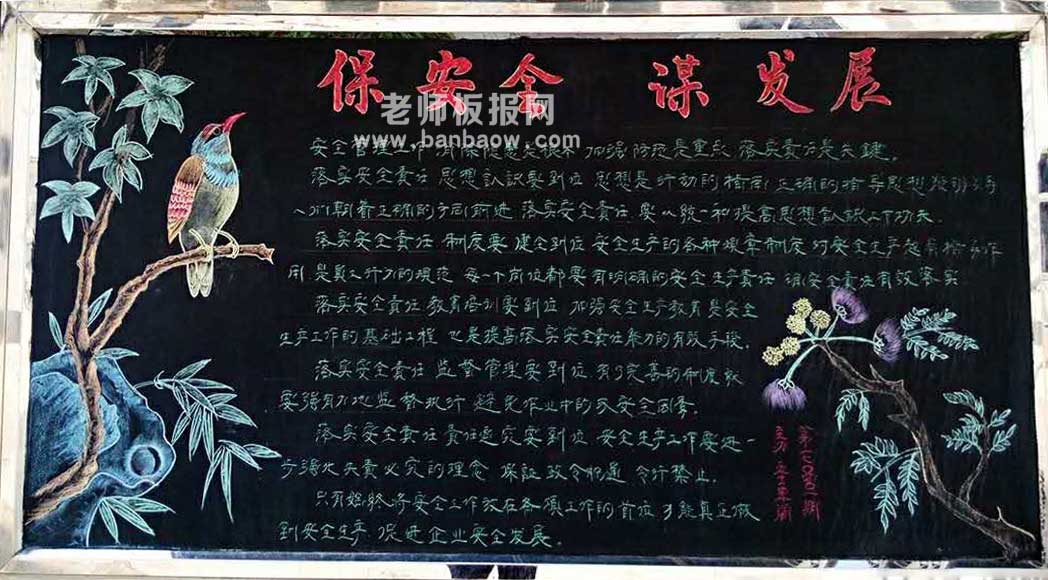 保安全 谋发展
老师板报网
www.banbaow.com
安全管理工作 消除隐患是根本 加强防范是重点 落实责任是关键。
落实安全责任 思想认识要到位 思想是行动的指南 正确的指导思想
人们朝着正确的方向前进 落实安全责任 要从统一和提高思想认识上下功夫.
落实安全责任 制度要健全到位 安全生产的各种规章制度 对安全生产起着指导作
用 是员工行为的规范 每一个岗位都要有明确的安全生产责任 确安全责任有效落实
落实安全责任 教育培训要到位 加强安全生产教育是安全
生产工作的基础工程 也是提高落实安全责任能力的有效手段.
落实安全责任 监督管理要到位 有了完善的制度就
要强有力地监督执行 避免作业中的不安全因素.
落实安全责任 责任追究要到位 安全生产工作要进一
步强化失责必究的理念 保证政令畅通 令行禁止.
只有始终将安全工作放在各项工作的首位 才能真正做
到安全生产 促进企业安全发展.